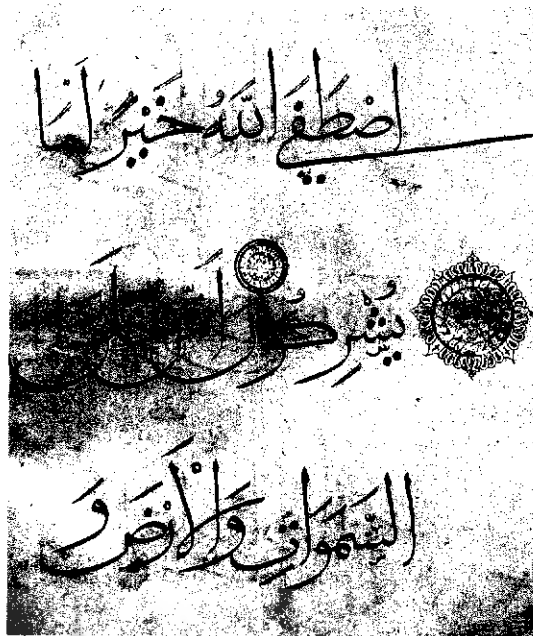 اصْطَفَى اللّٰهُ خَيْرٌ اَمَّا
يُشْرِكُونَ اَمَّنْ خَلَقَ
السَّمَوَاتِ وَالْاَرْضَ وَ